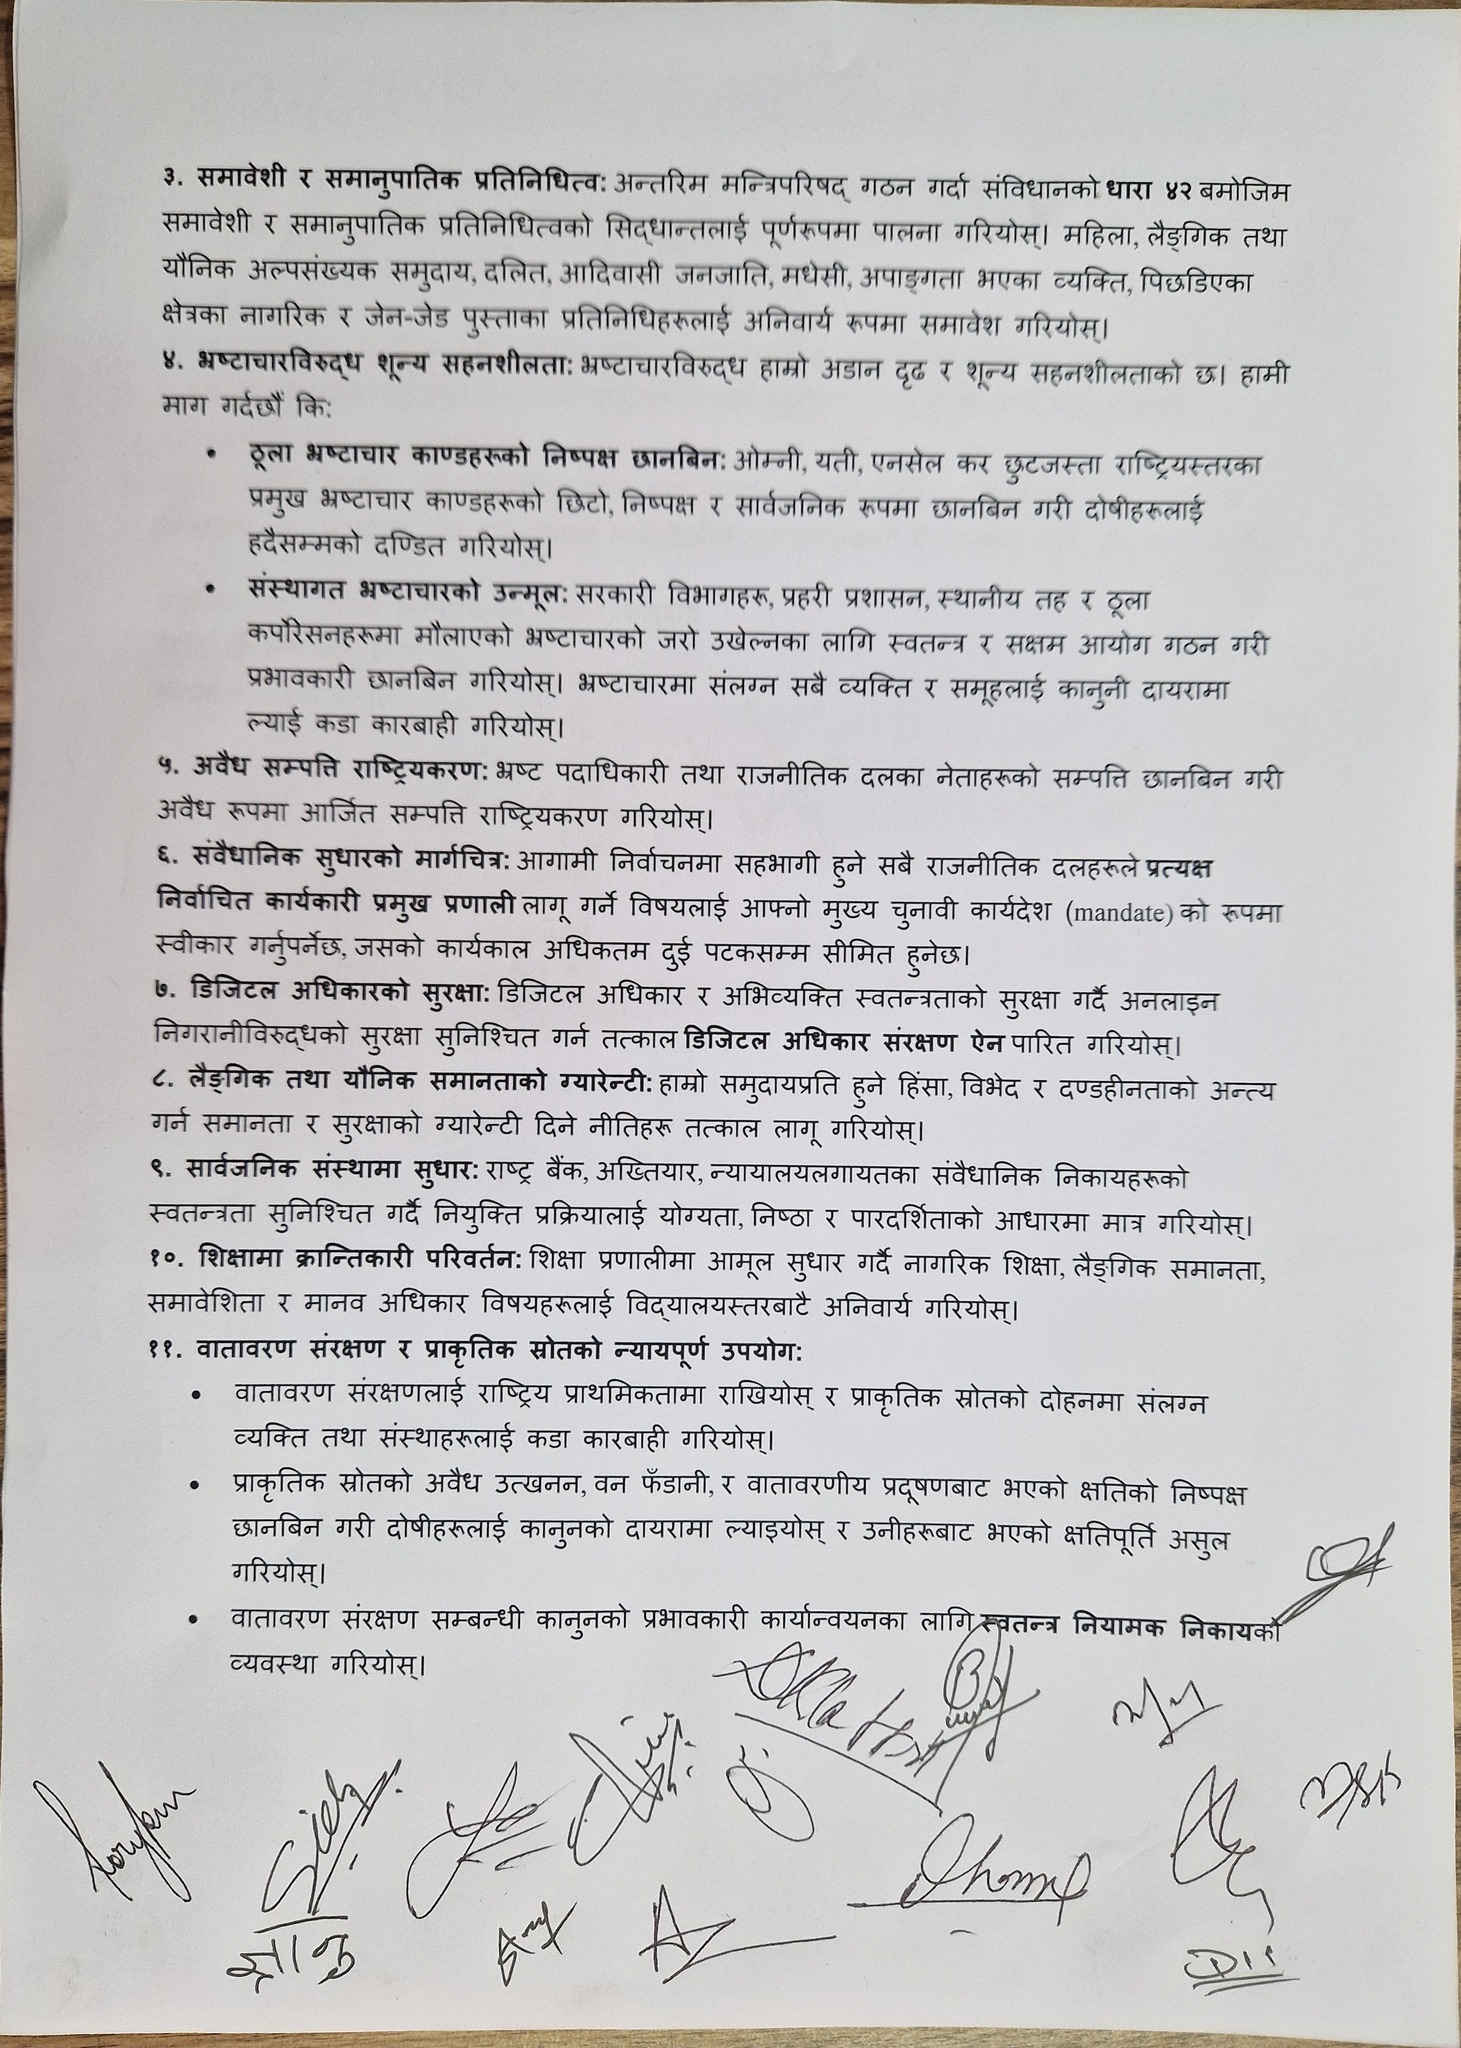 ३. समावेशी र समानुपातिक प्रतिनिधित्व: अन्तरिम मन्त्रिपरिषद् गठन गर्दा संविधानको धारा ४२ बमोजिम
समावेशी र समानुपातिक प्रतिनिधित्वको सिद्धान्तलाई पूर्णरूपमा पालना गरियोस्। महिला, लैङ्गिक तथा
यौनिक अल्पसंख्यक समुदाय, दलित, आदिवासी जनजाति, मधेसी, अपाङ्गता भएका व्यक्ति, पिछडिएका
क्षेत्रका नागरिक र जेन-जेड पुस्ताका प्रतिनिधिहरूलाई अनिवार्य रूपमा समावेश गरियोस्।
४. भ्रष्टाचारविरुद्ध शून्य सहनशीलता: भ्रष्टाचारविरुद्ध हाम्रो अडान दृढ र शून्य सहनशीलताको छ। हामी
माग गर्दछौं कि:
• ठूला भ्रष्टाचार काण्डहरूको निष्पक्ष छानबिन: ओम्नी, यती, एनसेल कर छुटजस्ता राष्ट्रियस्तरका
प्रमुख भ्रष्टाचार काण्डहरूको छिटो, निष्पक्ष र सार्वजनिक रूपमा छानबिन गरी दोषीहरूलाई
हदैसम्मको दण्डित गरियोस्।
• संस्थागत भ्रष्टाचारको उन्मूल: सरकारी विभागहरू, प्रहरी प्रशासन, स्थानीय तह र ठूला
कर्पोरेसनहरूमा मौलाएको भ्रष्टाचारको जरो उखेल्नका लागि स्वतन्त्र र सक्षम आयोग गठन गरी
प्रभावकारी छानबिन गरियोस्। भ्रष्टाचारमा संलग्न सबै व्यक्ति र समूहलाई कानुनी दायरामा
ल्याई कडा कारबाही गरियोस्।
५. अवैध सम्पत्ति राष्ट्रियकरण: भ्रष्ट पदाधिकारी तथा राजनीतिक दलका नेताहरूको सम्पत्ति छानबिन गरी
अवैध रूपमा आर्जित सम्पत्ति राष्ट्रियकरण गरियोस्।
६. संवैधानिक सुधारको मार्गचित्र: आगामी निर्वाचनमा सहभागी हुने सबै राजनीतिक दलहरूले प्रत्यक्ष
निर्वाचित कार्यकारी प्रमुख प्रणाली लागू गर्ने विषयलाई आफ्नो मुख्य चुनावी कार्यदेश (mandate) को रूपमा
स्वीकार गर्नुपर्नेछ, जसको कार्यकाल अधिकतम दुई पटकसम्म सीमित हुनेछ।
७. डिजिटल अधिकारको सुरक्षा: डिजिटल अधिकार र अभिव्यक्ति स्वतन्त्रताको सुरक्षा गर्दै अनलाइन
निगरानीविरुद्धको सुरक्षा सुनिश्चित गर्न तत्काल डिजिटल अधिकार संरक्षण ऐन पारित गरियोस्।
८. लैङ्गिक तथा यौनिक समानताको ग्यारेन्टी: हाम्रो समुदायप्रति हुने हिंसा, विभेद र दण्डहीनताको अन्त्य
गर्न समानता र सुरक्षाको ग्यारेन्टी दिने नीतिहरू तत्काल लागू गरियोस्।
९. सार्वजनिक संस्थामा सुधार: राष्ट्र बैंक, अख्तियार, न्यायालयलगायतका संवैधानिक निकायहरूको
स्वतन्त्रता सुनिश्चित गर्दै नियुक्ति प्रक्रियालाई योग्यता, निष्ठा र पारदर्शिताको आधारमा मात्र गरियोस्।
१०. शिक्षामा क्रान्तिकारी परिवर्तन: शिक्षा प्रणालीमा आमूल सुधार गर्दै नागरिक शिक्षा, लैङ्गिक समानता,
समावेशिता र मानव अधिकार विषयहरूलाई विद्यालयस्तरबाटै अनिवार्य गरियोस्।
११. वातावरण संरक्षण र प्राकृतिक स्रोतको न्यायपूर्ण उपयोग:
• वातावरण संरक्षणलाई राष्ट्रिय प्राथमिकतामा राखियोस् र प्राकृतिक स्रोतको दोहनमा संलग्न
व्यक्ति तथा संस्थाहरूलाई कडा कारबाही गरियोस्।
• प्राकृतिक स्रोतको अवैध उत्खनन, वन फँडानी, र वातावरणीय प्रदूषणबाट भएको क्षतिको निष्पक्ष
छानबिन गरी दोषीहरूलाई कानुनको दायरामा ल्याइयोस् र उनीहरूबाट भएको क्षतिपूर्ति असुल
गरियोस्।
• वातावरण संरक्षण सम्बन्धी कानुनको प्रभावकारी कार्यान्वयनका लागि स्वतन्त्र नियामक निकायको
व्यवस्था गरियोस्।